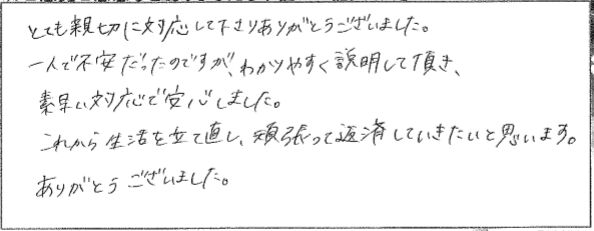 とても親切に対応して下さりありがとうございました。
一人で不安だったのですが、わかりやすく説明して頂き、
素早い対応で安心しました。
これから生活を立て直し、頑張って返済していきたいと思います。
ありがとうございました。